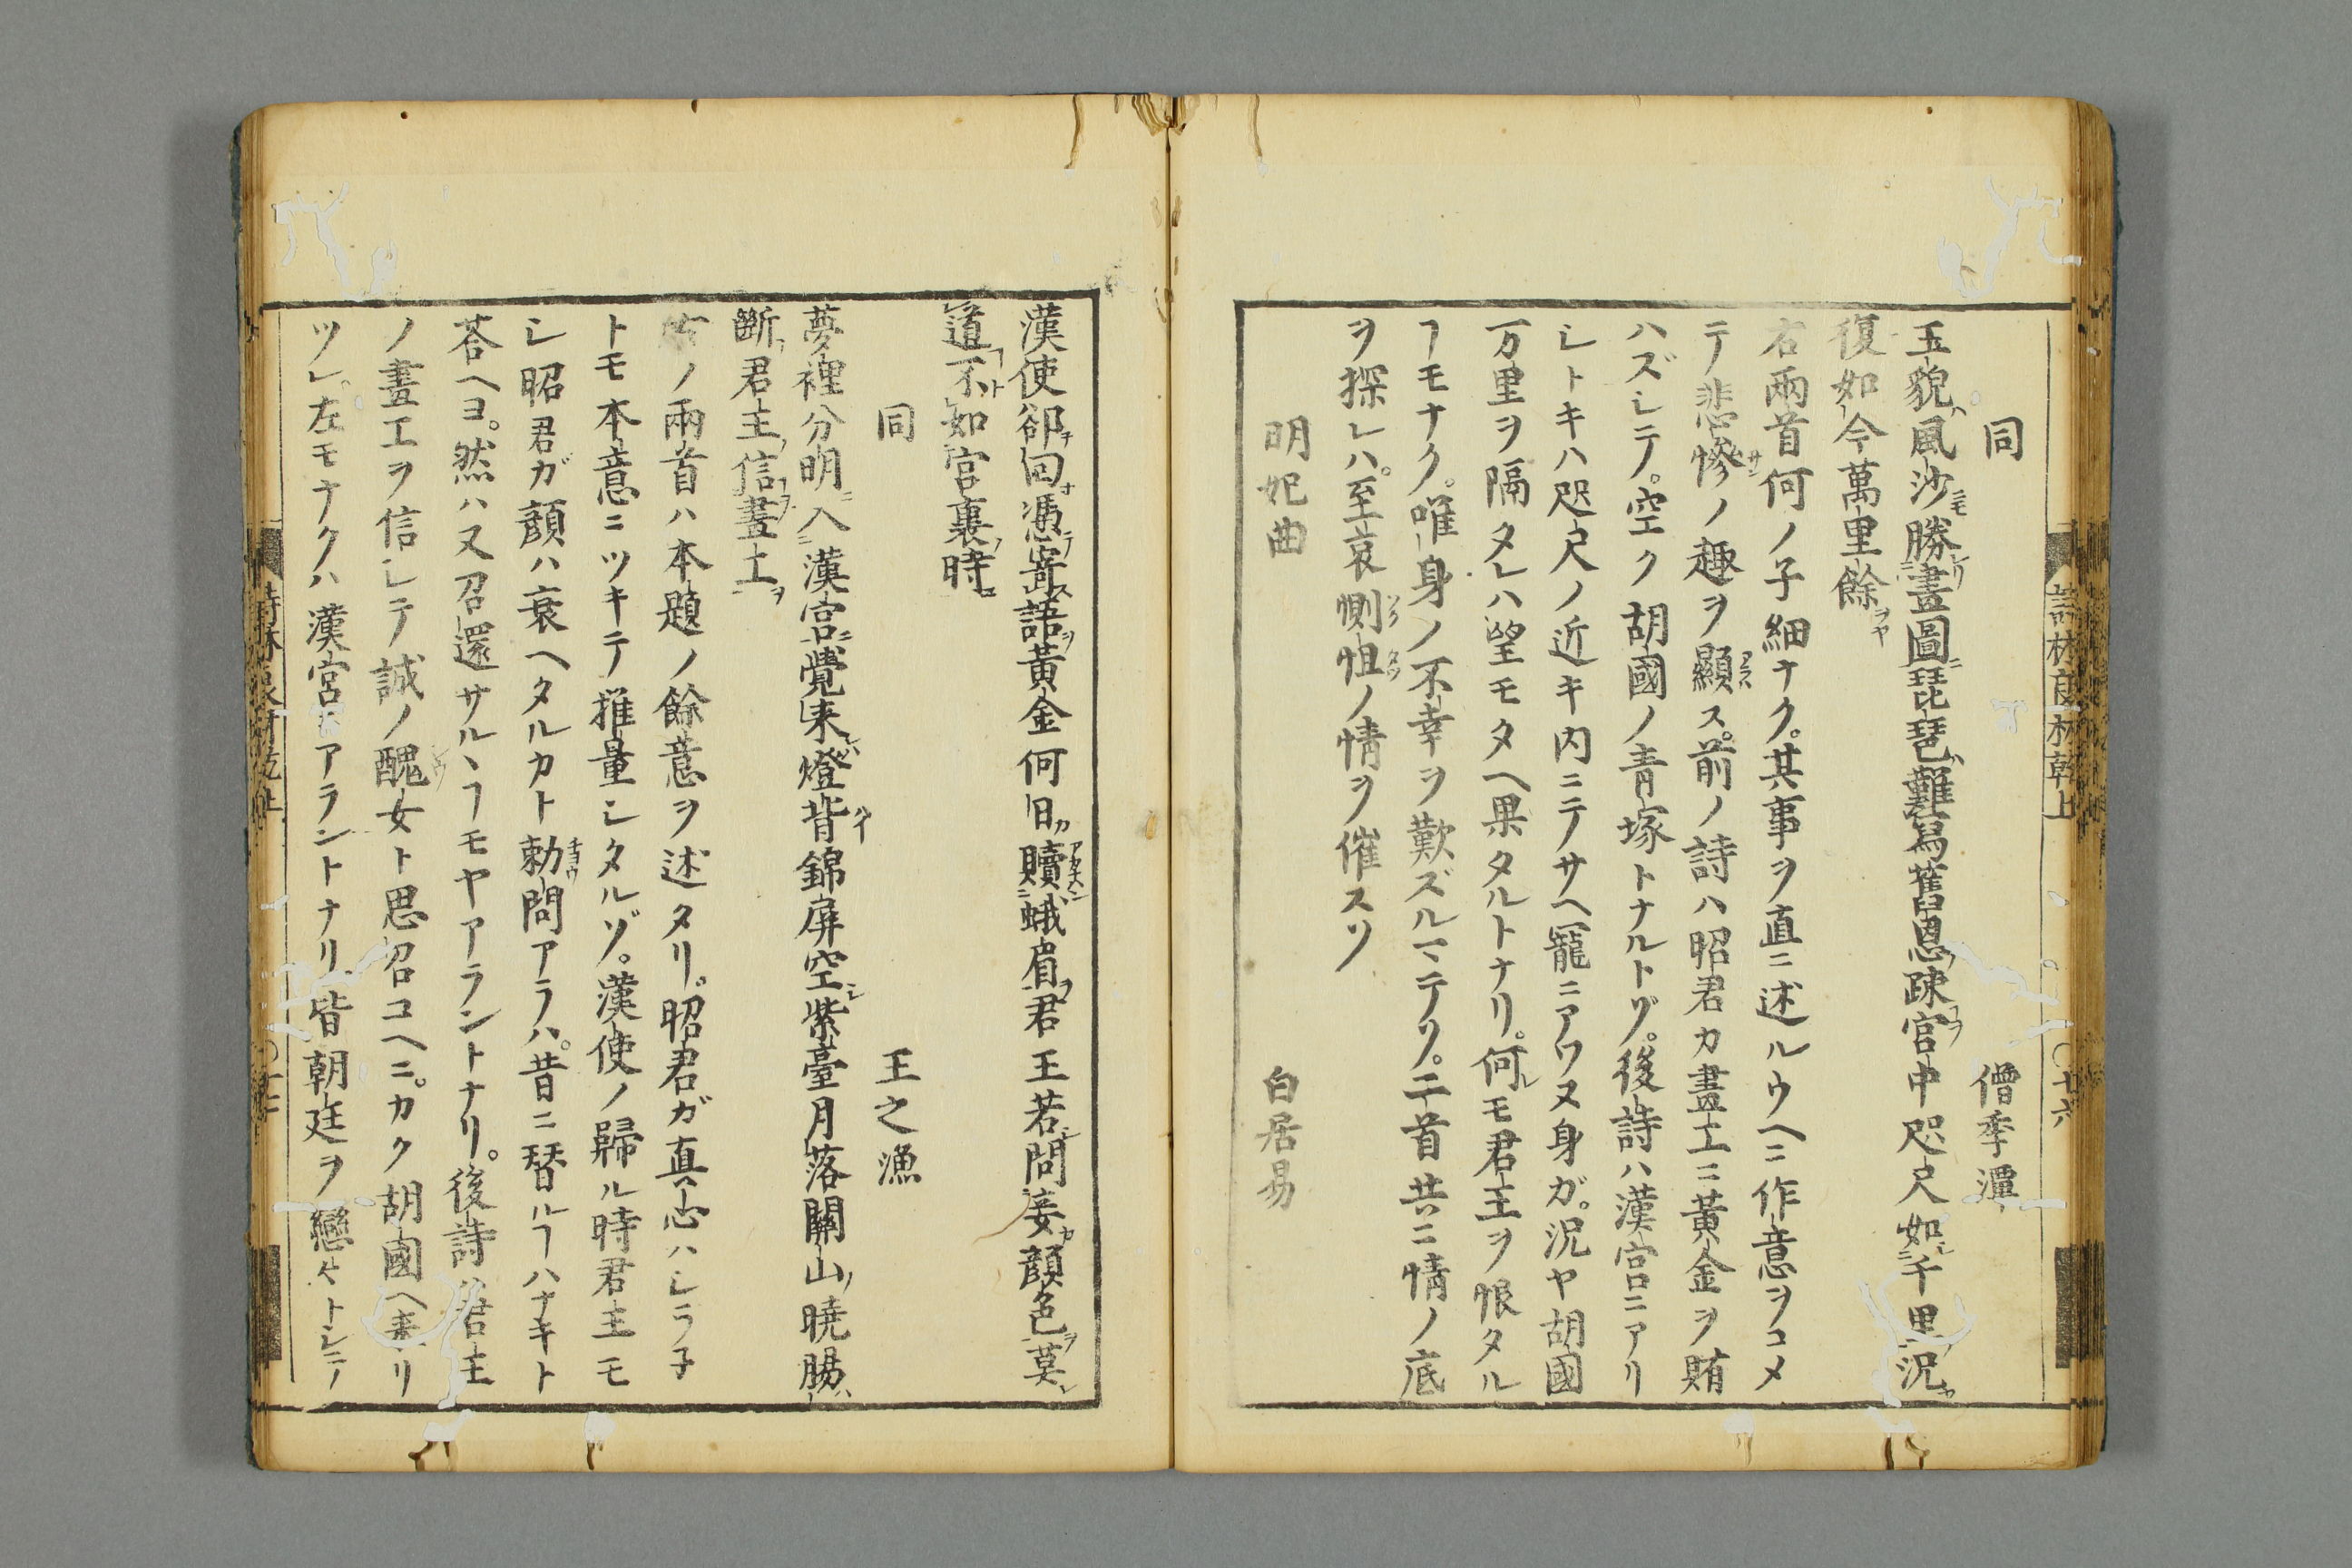 同　僧季潭
玉貌風沙勝畫圖琵琶難寫舊恩疎宮中咫尺如千里況
復如今萬里餘
右兩首何ノ子細ナク。其事ヲ直ニ述ルウヘニ作意ヲコメ
テ悲慘ノ趣ヲ顯ス。前ノ詩ハ昭君カ畫工ニ黃金ヲ賄
ハズシテ。空ク胡國ノ青塚トナルトゾ。後詩ハ漢宮ニアリ
シトキハ咫尺ノ近キ内ニテサヘ寵ニアワヌ身ガ。況ヤ胡國
万里ヲ隔タレハ望モタヘ果タルトナリ。何レモ君王ヲ恨タル
ヿモナク。唯身ノ不幸ヲ歎ズルマテリ。二首共ニ情ノ底
ヲ探レハ。至哀惻怛ノ情ヲ催スリ
明妃曲　白居易
詩林良材乾上　〇十六
漢使卻回憑寄語黃金何日贖蛾眉君王若問妾顏色莫
道不如宮裏時
同　王之渙
夢裡分明入漢宮覺来燈背錦屏空紫臺月落關山曉腸
斷君主信畫工
ノ兩首ハ本題ノ餘意ヲ述タリ。昭君ガ真心ハシラ子
トモ本意ニツキテ推量シタルゾ。漢使ノ歸ル時君主モ
シ昭君ガ顔ハ衰ヘタルカト勅問アラハ。昔ニ替ルヿハナキト
荅ヘヨ。然ハ又召還サルヽヿモヤアラントナリ。後詩ハ君王
ノ畫工ヲ信シテ誠ノ醜女ト思召コヘニ。カク胡國ヘ来リ
ツレ。左モナクハ漢宮アラントナリ。皆朝廷ヲ戀トシテ